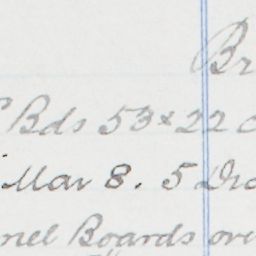 Br
Bds 53 x 22
Mar 8. 5
nel Boards ov